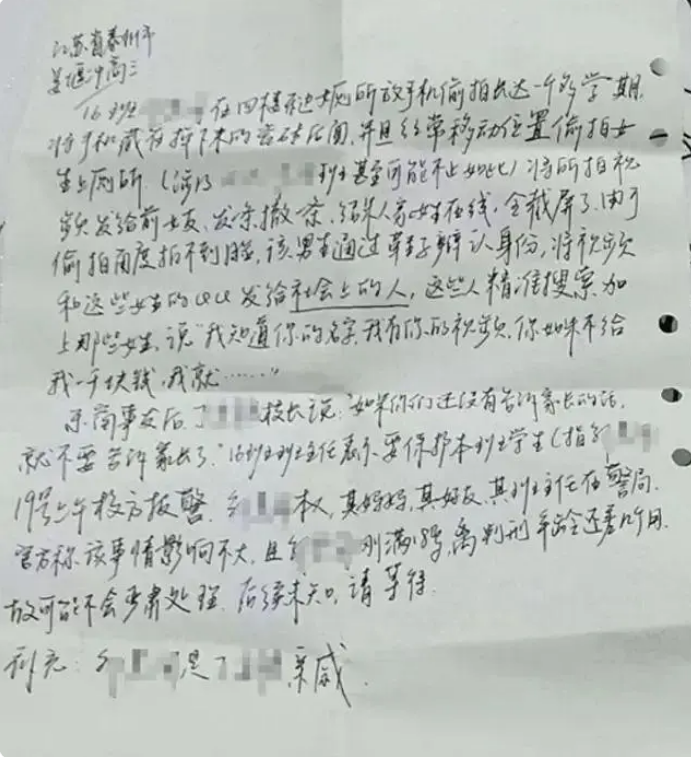 江苏省泰州市
姜堰中高三
16班 在四楼、女厕所放手机偷拍长达一个多学期,
将手机藏在掉下来的瓷砖后面,并且经常移动位置偷拍女
生上厕所。(涉及 班甚至可能不止如此)将所拍视
频发给前女友、发条撤一条,结果人家女生在线,全截屏了。由于
偷拍角度拍不到脸,该男生通过鞋子辨认身份,将视频
和这些女生的QQ发给社会上的人,这些人精准搜索加
上那些女生,说“我知道你的名字,我有你的视频,你如果不给
我一千块钱,我就……”
东窗事发后,丁 校长说:“如果你们还没有告诉家长的话,
就不要告诉家长了。”16班班主任表示要保护本班学生(指
19号上午校方报警, 本人,其妈妈,其好友,其班主任在警局。
官方称该事情影响不大,且 刚满 岁,离判刑年龄还差几个月,
故可能不会严肃处理。后续未知,请等待。
补充: 是丁 亲戚.